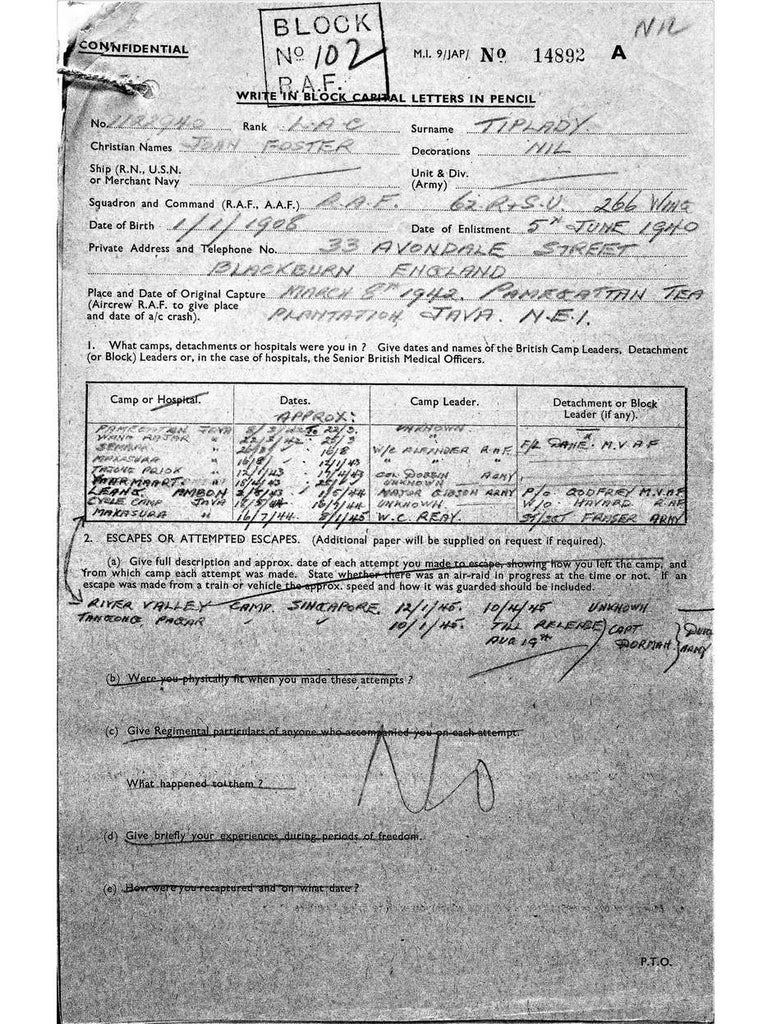 NIL
BLOCK
CONNFIDENTIAL
No 102
M.I. 9/JAP/ No 14892 A
R.A.F.
WRITE IN BLOCK CAPITAL LETTERS IN PENCIL
No. 1122940 Rank L.A.C Surname TIPLADY
Christian Names JOHN FOSTER Decorations NIL
Ship (R.N., U.S.N. or Merchant Navy
Unit & Div. (Army)
Squadron and Command (R.A.F., A.A.F.) R.A.F. 62 R+S.U. 266 WING
Date of Birth 1/1/1908 Date of Enlistment 5TH JUNE 1940
Private Address and Telephone No. 33 AVONDALE STREET
BLACKBURN ENGLAND
Place and Date of Original Capture MARCH 8TH 1942. PAMEGATTAN TEA
(Aircrew R.A.F. to give place
and date of a/c crash). PLANTATION, JAVA. N.E.I.
1. What camps, detachments or hospitals were you in ? Give dates and names of the British Camp Leaders, Detachment
(or Block) Leaders or, in the case of hospitals, the Senior British Medical Officers.
Camp or Hospital. Dates. Camp Leader. Detachment or Block
Leader (if any).
APPROX:
PAMEGATAN JAVA 8/3/42 To 22/3. UNKNOWN
22/3/42 25/3 "
16/8 W/C ALEXANDER R.A.F. F/L DANE. M.V.A.F
MAKASURA " 16/8/ 12/1/43 "
TAJONG PRIOK " 12/1/43 COL DOBBIN ARMY
" 18/4/43 UNKNOWN
AMBON 2/5/43 1/5/44 MAJOR GIBSON ARMY P/O GODFREY M.V.A.F
CYCLE CAMP JAVA 16/7/44 UNKNOWN W/O HAVARD R.A.F
MAKASURA " 16/7/44. 8/1/45 W.C. REAY. FRASER ARMY
2. ESCAPES OR ATTEMPTED ESCAPES. (Additional paper will be supplied on request if required).
(a) Give full description and approx. date of each attempt you made to escape, showing how you left the camp, and
from which camp each attempt was made. State whether there was an air-raid in progress at the time or not. If an
escape was made from a train or vehicle the approx. speed and how it was guarded should be included.
RIVER VALLEY CAMP. SINGAPORE. 12/1/45. 10/4/45 UNKNOWN
TANGONG PAGAR 10/1/45. TILL RELEASE CAPT DORMAH.
AUG 19TH ARMY
(b) Were you physically fit when you made these attempts ?
(c) Give Regimental particulars of anyone who accompanied you on each attempt.
No
What happened to them ?
(d) Give briefly your experiences during periods of freedom.
(e) How were you recaptured and on what date ?
P.T.O.